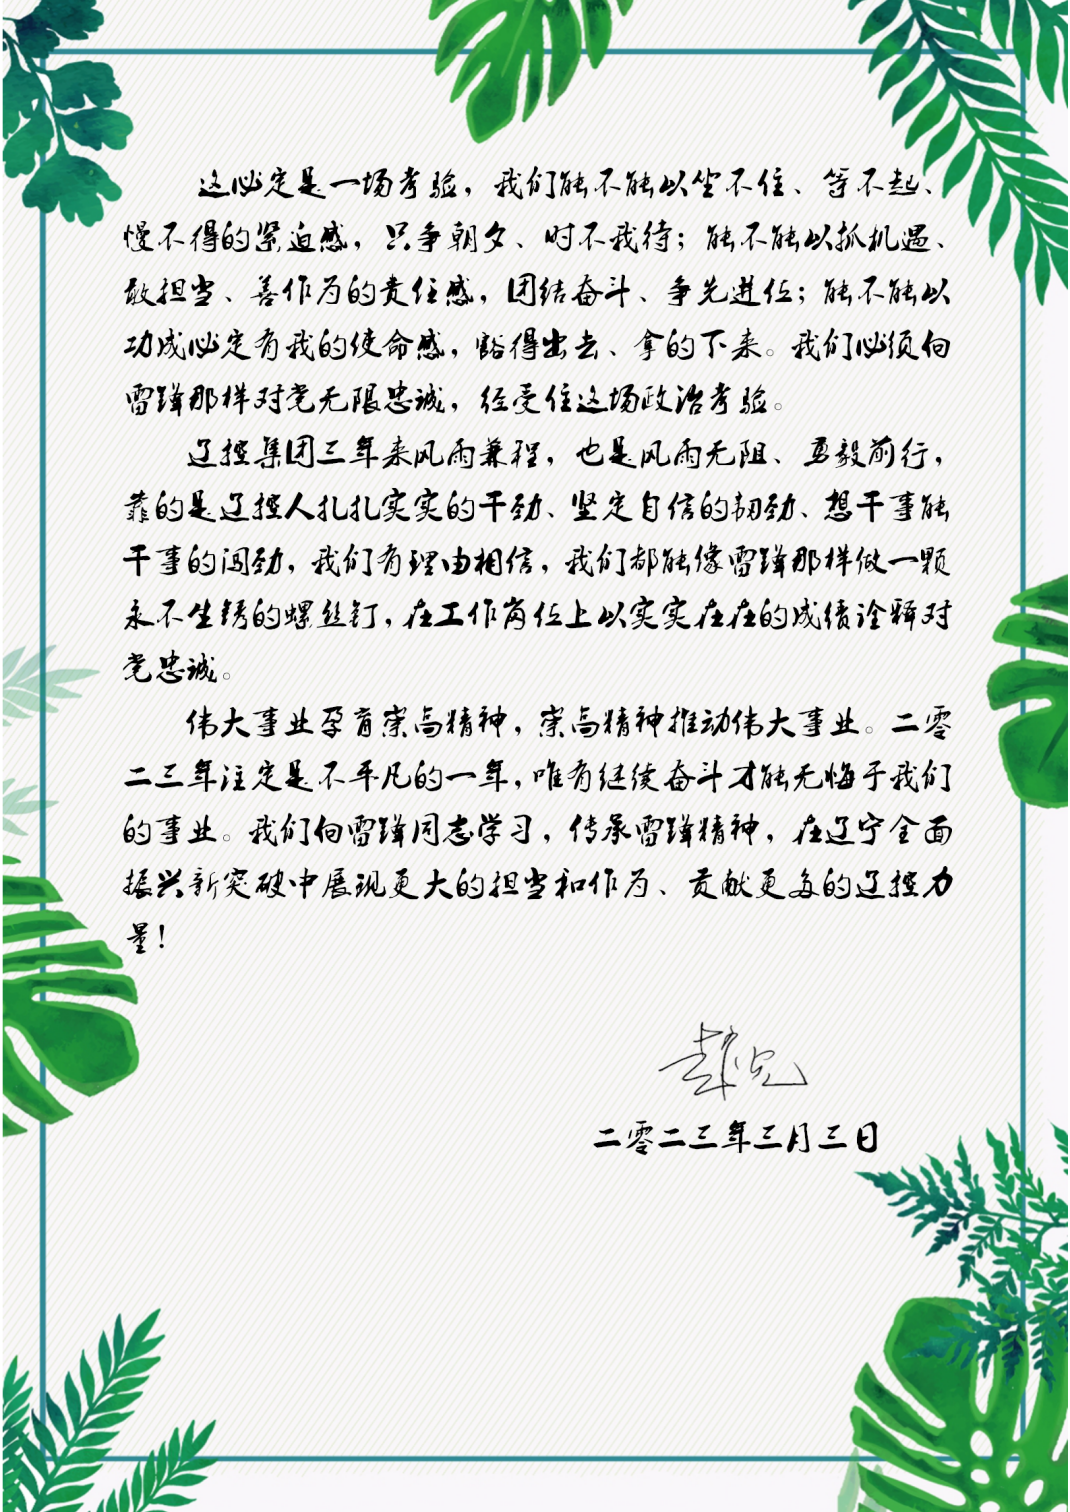 这必定是一场考验，我们能不能以坐不住、等不起、
慢不得的紧迫感，只争朝夕、时不我待；能不能以抓机遇、
敢担当、善作为的责任感，团结奋斗、争先进位；能不能以
功成必定有我的使命感，豁得出去、拿的下来。我们必须向
雷锋那样对党无限忠诚，经受住这场政治考验。
辽控集团三年来风雨兼程，也是风雨无阻、勇毅前行，
靠的是辽控人扎扎实实的干劲、坚定自信的韧劲、想干事能
干事的闯劲，我们有理由相信，我们都能像雷锋那样做一颗
永不生锈的螺丝钉，在工作岗位上以实实在在的成绩诠释对
党忠诚。
伟大事业孕育崇高精神，崇高精神推动伟大事业。二零
二三年注定是不平凡的一年，唯有继续奋斗才能无悔于我们
的事业。我们向雷锋同志学习，传承雷锋精神，在辽宁全面
振兴新突破中展现更大的担当和作为、贡献更多的辽控力
量！
二零二三年三月三日